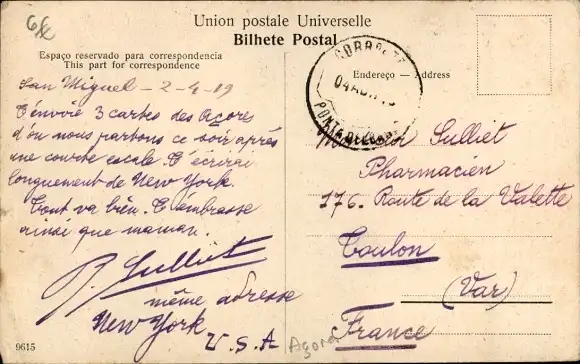 6£
Union postale Universelle
Bilhete Postal
Espaço reservado para correspondencia
This part for correspondence
Endereço — Address
CORREIO
04 AB
PONTA DELGADA
San Miguel – 2-4-19
T'envoie 3 cartes des Açores
d'où nous partons ce soir après
une courte escale. T'écrirai
longuement de New York.
Tout va bien. T'embrasse
ainsi que maman.
P. Sulliet
même adresse
New York
U.S.A
Monsieur Sulliet
Pharmacien
176. Route de la Valette
Toulon
(Var)
France
9615